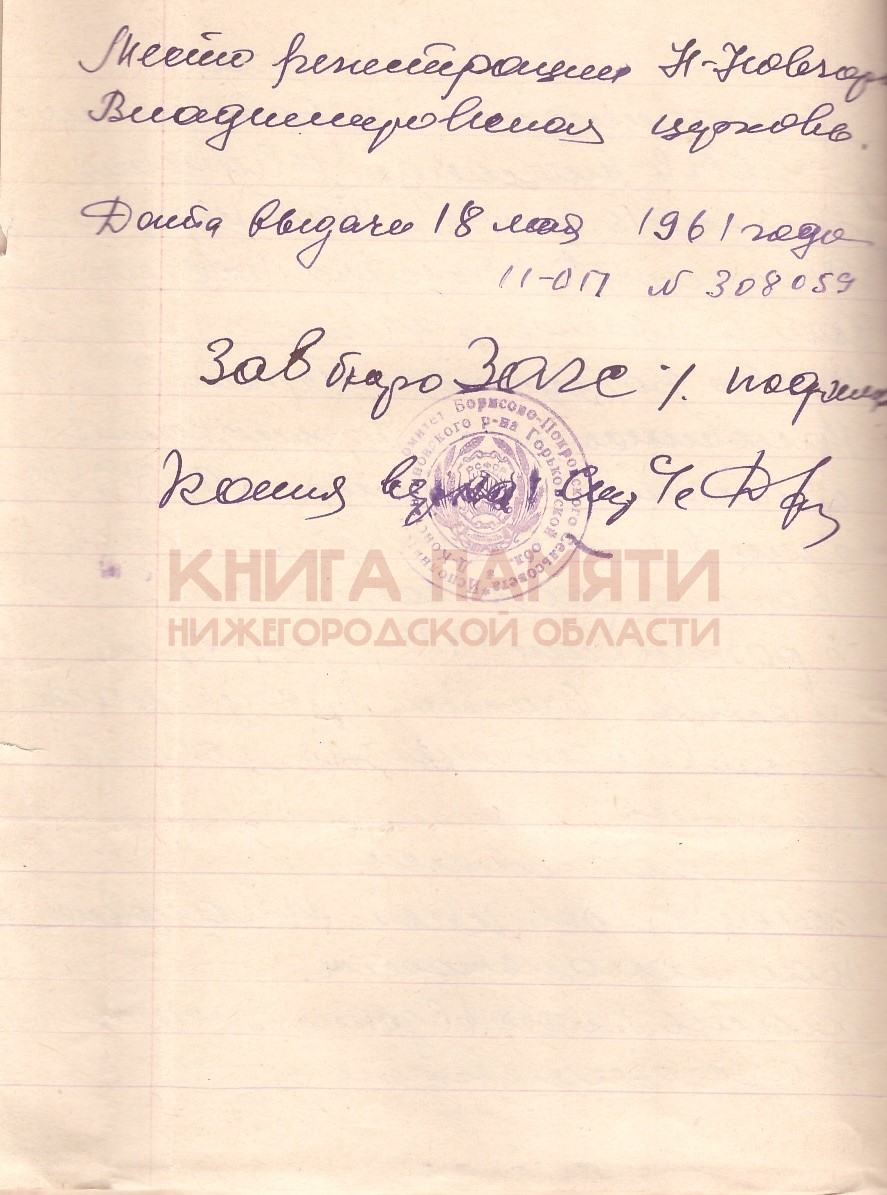 Место регистрации Н-Новгор
Владимировская церковь.
Дата выдачи 18 мая 1961 года
II-ОП № 308059
Зав бюро Загс /. подпись
Копия верна!
Исполнит комитет Борисово-Покровского сельсовета Д-Конс новского р-на Горьковской обл.
РСФСР
КНИГА ПАМЯТИ
НИЖЕГОРОДСКОЙ ОБЛАСТИ